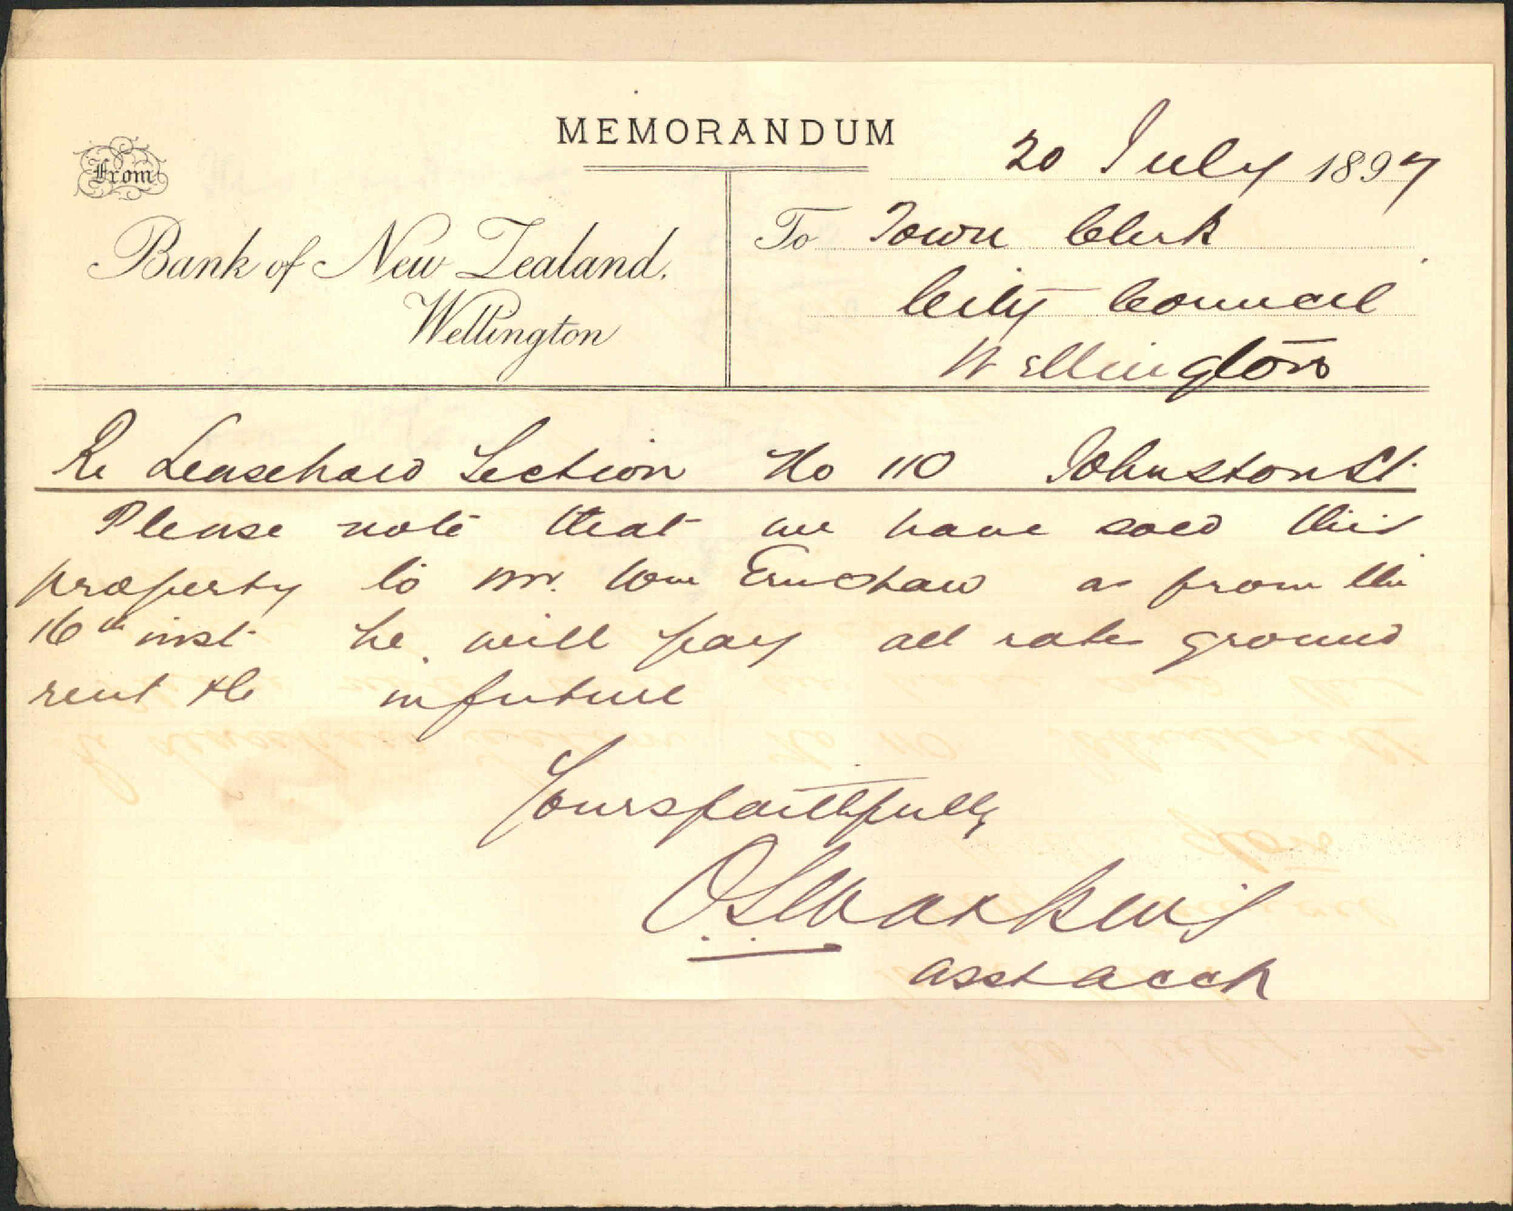 MEMORANDUM
20 July 1897
From
Bank of New Zealand.
Wellington
To Town Clerk
City Council
Wellington
Re Leasehold Section No 110 Johnston St.
Please note that we have sold this
property to Mr. Wm as from the
16th inst. he will pay all rates ground
rent &c in future
Yours faithfully
Asst Acct